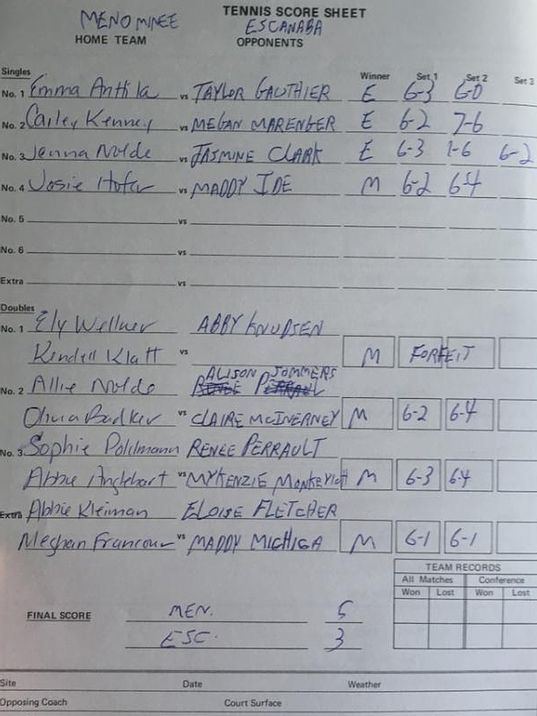 TENNIS SCORE SHEET
MENOMINEE ESCANABA
HOME TEAM OPPONENTS
Singles Winner Set 1 Set 2 Set 3
No. 1 Emma Anttila vs TAYLOR GAUTHIER E 6-3 6-0
No. 2 Cailey Kenney vs MEGAN MARENGER E 6-2 7-6
No. 3 Jenna Nolde vs JASMINE CLARK E 6-3 1-6 6-2
No. 4 Josie Hofer vs MADDY IDE M 6-2 6-4
No. 5 vs
No. 6 vs
Extra vs
Doubles
No. 1 Ely Wellner ABBY KNUDSEN
Kendall Klatt vs M FORFEIT
ALISON SOMMERS
No. 2 Allie Nolde
Olivia Badker vs CLAIRE McINERNEY M 6-2 6-4
No. 3 Sophie Pohlmann RENEE PERRAULT
Abbie Anglehart vs MYKENZIE M 6-3 6-4
Extra Abbie Kleiman ELOISE FLETCHER
Meghan Francour vs MADDY MICHIGA M 6-1 6-1
TEAM RECORDS
All Matches Conference
Won Lost Won Lost
FINAL SCORE MEN. 5
ESC. 3
Site Date Weather
Opposing Coach Court Surface